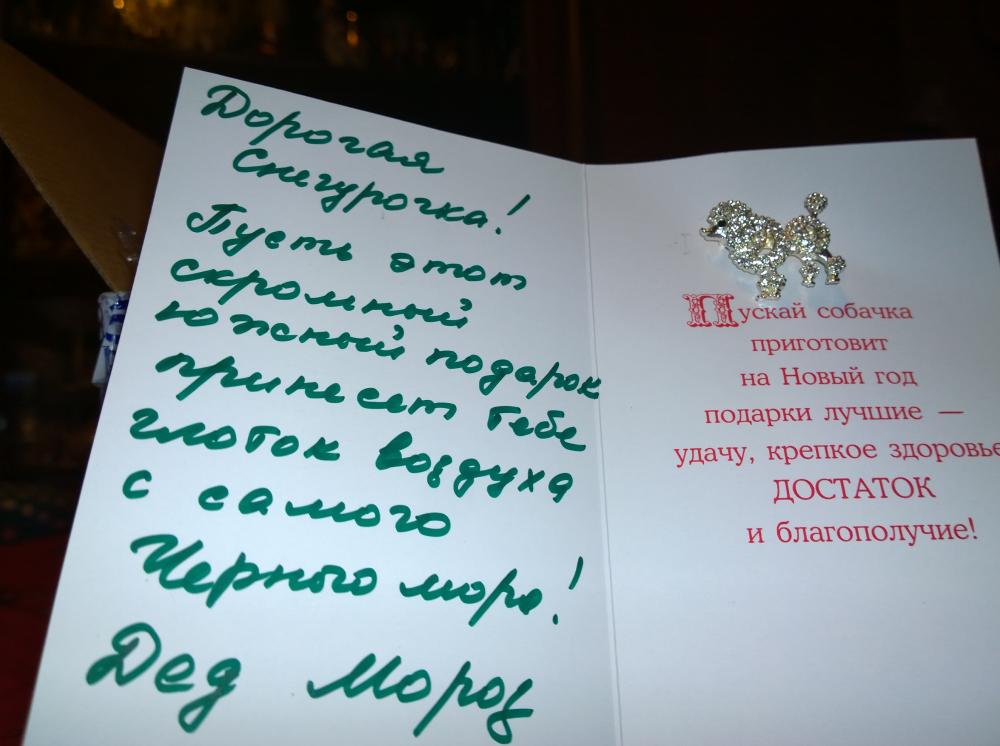 Дорогая
Снегурочка!
Пусть этот
скромный
южный подарок
принесет тебе
глоток воздуха
с самого
Черного моря!
Дед Мороз
Пускай собачка
приготовит
на Новый год
подарки лучшие —
удачу, крепкое здоровье
ДОСТАТОК
и благополучие!